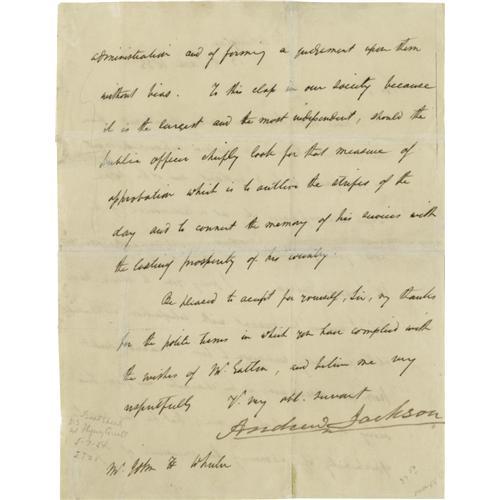 administration and of forming a judgement upon them
without bias. To this class in our society because
it is the largest and the most independent, should the
public officer chiefly look for that measure of
approbation which is to outlive the strifes of the
day and to connect the memory of his services with
the lasting prosperity of his country.
Be pleased to accept for yourself, Sir, my thanks
for the polite terms in which you have complied with
the wishes of Mr. Eatton, and believe me very
respectfully Yr. very obt. servant
Andrew Jackson
Mr. John H Wheeler
5-7-54